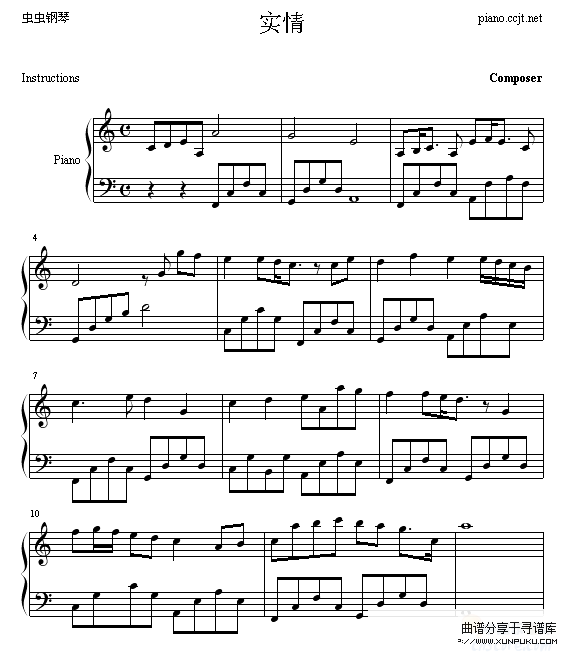 虫虫钢琴
实情
piano.ccjt.net
Instructions
Composer
Piano
4
7
10
曲谱分享于寻谱库
www.xunpuku.com